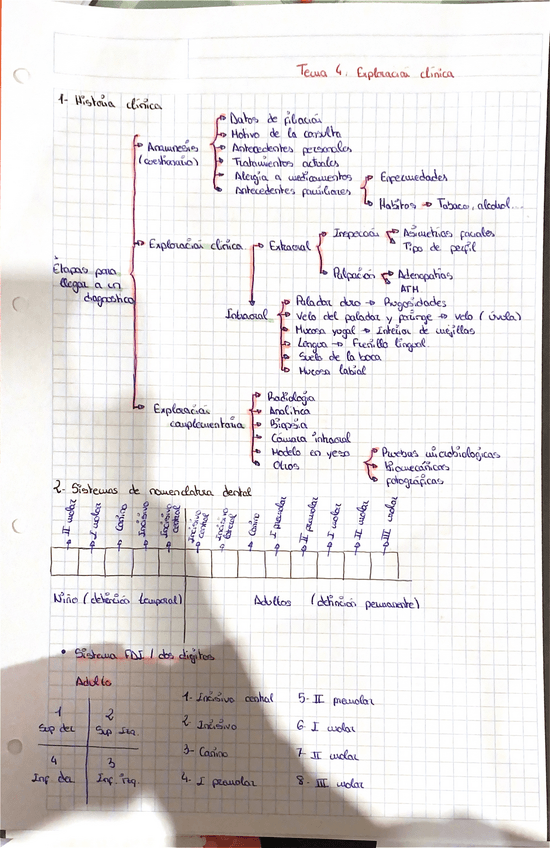 Tema 4. Exploración clínica
1- Historia clínica
Etapas para llegar a un diagnostico
Anamnesis (cuestionario)
Datos de filiación
Motivo de la consulta
Antecedentes personales
Tratamientos actuales
Alergia a medicamentos
Antecedentes familiares
Enfermedades
Hábitos → Tabaco, alcohol...
Exploración clínica
Extraoral
Inspección
Asimetrías faciales
Tipo de perfil
Palpación
Adenopatías
ATM
Intraoral
Paladar duro → Rugosidades
Velo del paladar y faringe → velo (úvula)
Mucosa yugal → Interior de mejillas
Lengua → Frenillo lingual
Suelo de la boca
Mucosa labial
Exploración complementaria
Radiología
Analítica
Biopsia
Cámara intraoral
Modelo en yeso
Otros
Pruebas microbiológicas
Biomecánicas
fotográficas
2- Sistemas de nomenclatura dental
II molar
I molar
Canino
Incisivo
Incisivo central
Incisivo central
Incisivo lateral
Canino
I premolar
II premolar
I molar
II molar
III molar
Niño (dentición temporal)
Adultos (dentición permanente)
• Sistema FDI / dos dígitos
Adulto
1 Sup der
2 Sup Izq.
4 Inf. der
3 Inf. izq.
1- Incisivo central
2- Incisivo
3- Canino
4- I premolar
5- II premolar
6- I molar
7- II molar
8- III molar